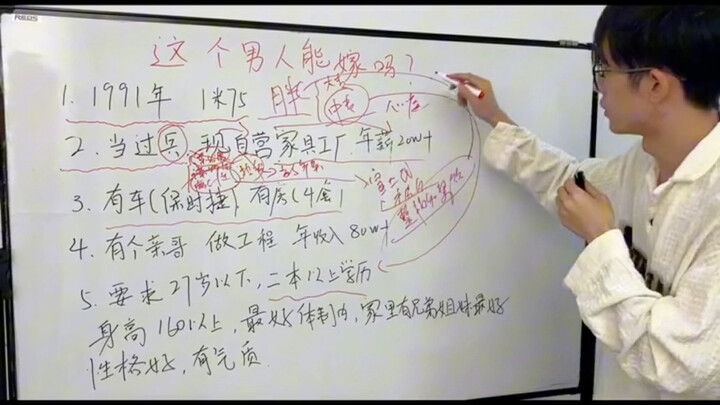 这个男人能嫁吗?
1. 1991年 1米75 胖 中专
2. 当过兵 现自营家具工厂. 年薪20w+
3. 有车(保时捷) 有房(4套)
4. 有个亲哥 做工程 年收入80w+
5. 要求27岁以下,二本以上学历
身高160以上,最好体制内,家里有兄弟姐妹最好
性格好,有气质